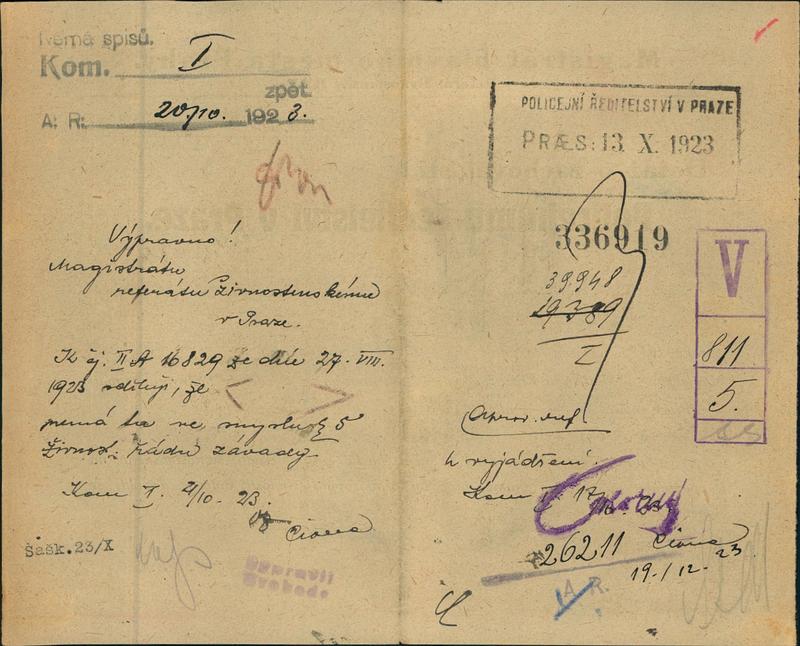 Nemá spisů.
Kom. I
zpět.
A: R: 20/10. 1923.
Výpravno!
Magistrátu
referátu živnostenskému
v Praze.
K čj. II A 16829 ze dne 27. VIII.
1923 sděluji, že
nemá ta ve smyslu § 5
živnost. řádu závady
Kom I. 21/10. 23.
Šašk. 23/X
Vypravil
Svoboda
POLICEJNÍ ŘEDITELSTVÍ V PRAZE
PRÆS: 13. X. 1923
336919
39948
19389
I
V
811
5.
k vyjádření.
Kom I. 17/10. 23.
26211
19./12. 23
A. R.